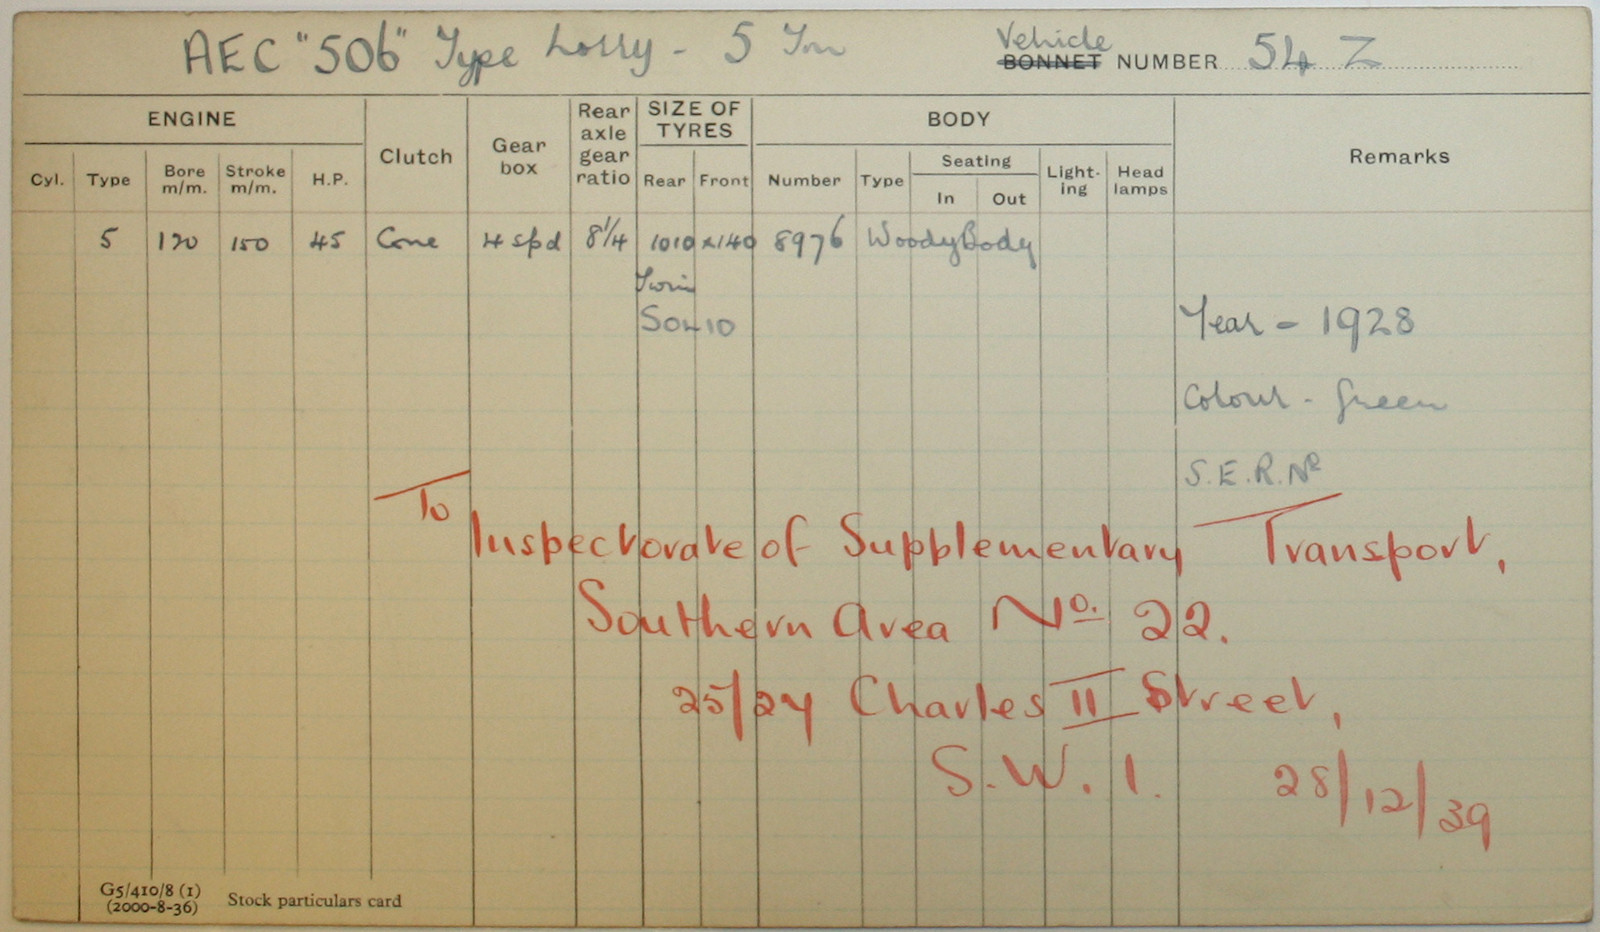 AEC "506" Type Lorry - 5 Ton
Vehicle
BONNET NUMBER 54 Z
ENGINE
Clutch
Gear box
Rear axle gear ratio
SIZE OF TYRES
BODY
Remarks
Cyl. Type Bore m/m. Stroke m/m. H.P.
Rear Front
Number Type Seating
In Out
Light-ing
Head lamps
5 120 150 45 Cone 4 spd 8¼ 1010 x 140 8976 Woody Body
Twin
SOLID
Year - 1928
Colour - Green
S.E.R. No
To
Inspectorate of Supplementary Transport,
Southern Area No. 22.
25/27 Charles II Street,
S.W. 1. 28/12/39
G5/410/8 (1)
(2000-8-36) Stock particulars card